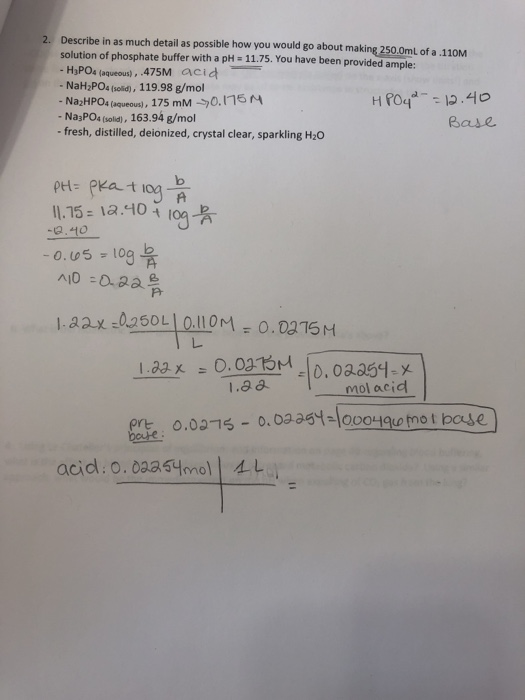 2. Describe in as much detail as possible how you would go about making 250.0mL of a .110M
solution of phosphate buffer with a pH = 11.75. You have been provided ample:
- H₃PO₄ (aqueous), .475M acid
- NaH₂PO₄ (solid), 119.98 g/mol
- Na₂HPO₄ (aqueous), 175 mM → 0.175M
- Na₃PO₄ (solid), 163.94 g/mol
- fresh, distilled, deionized, crystal clear, sparkling H₂O
HPO₄²⁻ = 12.40
Base
pH = pKa + log b/A
11.75 = 12.40 + log b/A
-12.40
-0.65 = log b/A
^10 = 0.22 B/A
1.22x = 0.250L | 0.110M = 0.0275M
L
1.22x = 0.0275M = 0.02254 = x
1.22 mol acid
base: 0.0275 - 0.02254 = 0.00496 mol base
acid: 0.02254mol | 1L =